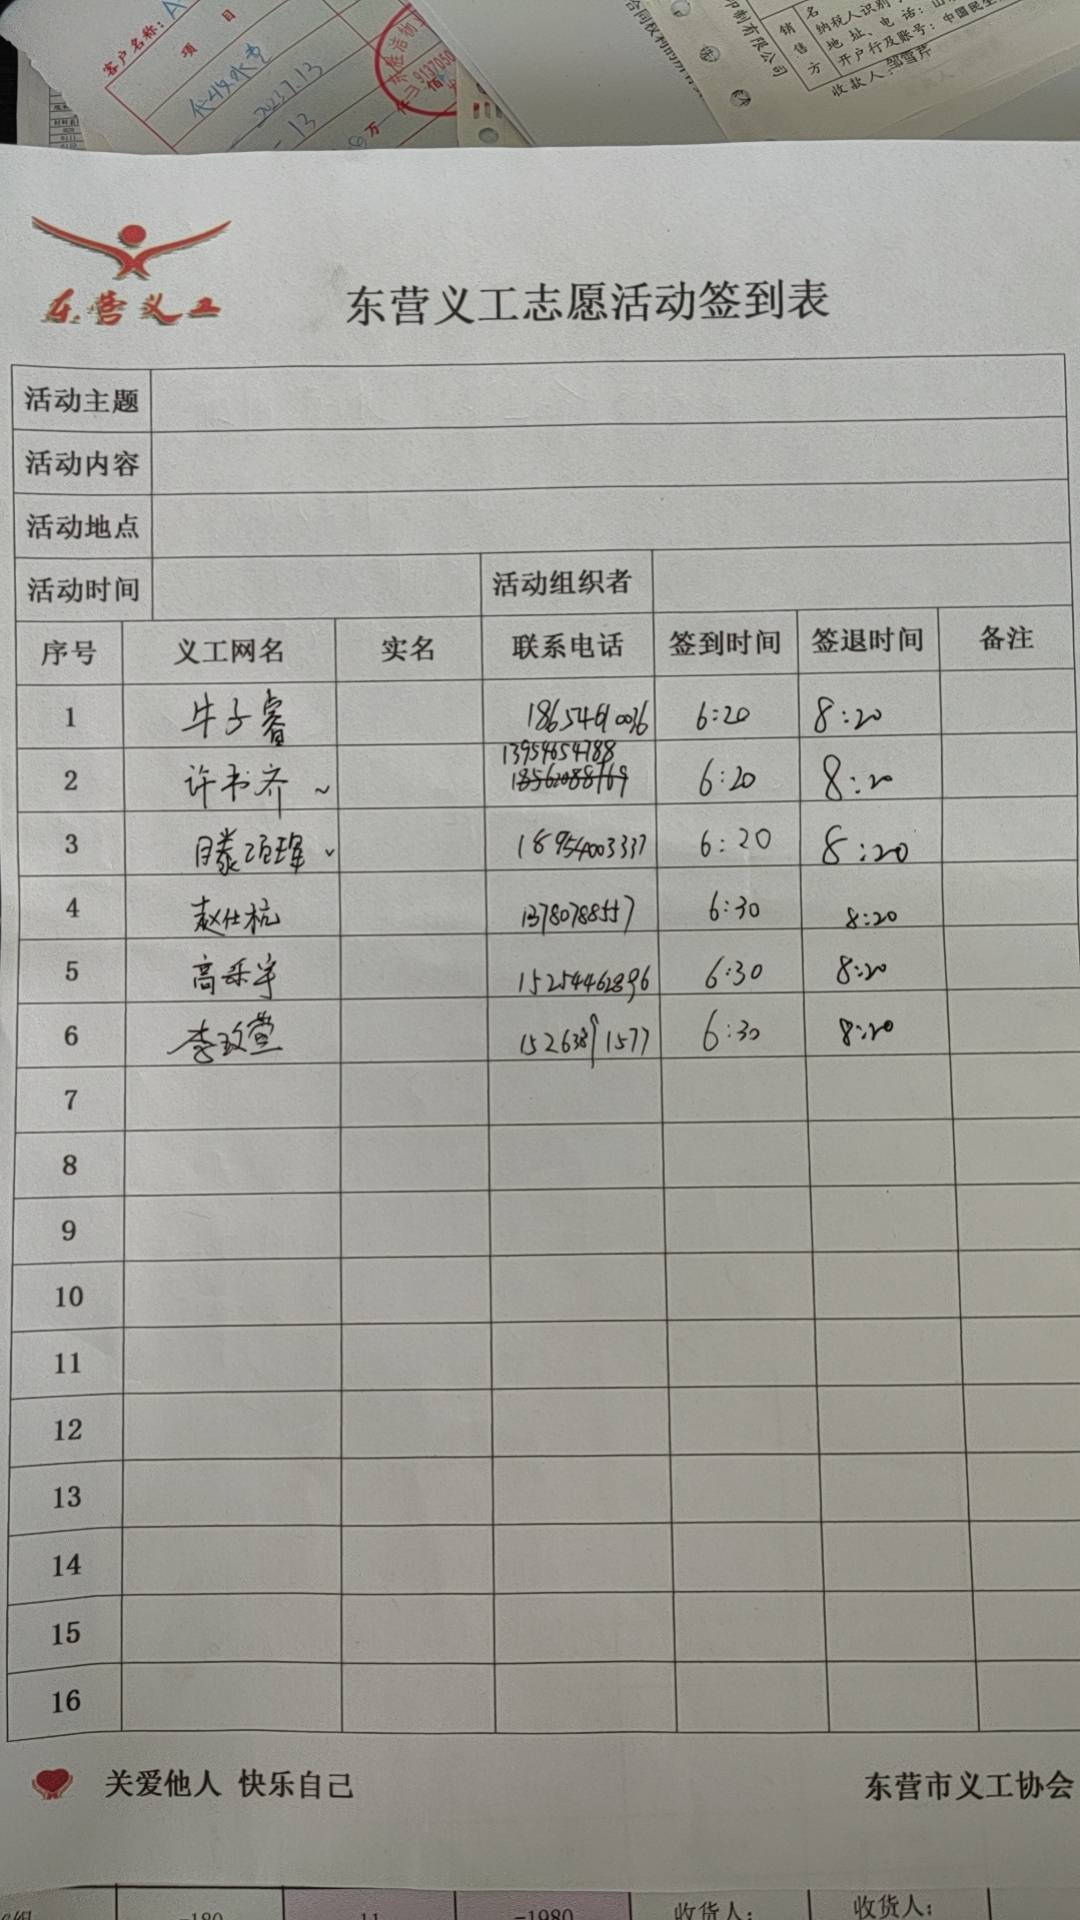 客户名称:
项 目
代收水费
2023.7.13
13
万
9137050
销售方
名
纳税人识别
地址、电话:山
开户行及账号:中国民生
收款人:邹雪芹
印制有限公司
东营义工
东营义工志愿活动签到表
活动主题
活动内容
活动地点
活动时间 活动组织者
序号 义工网名 实名 联系电话 签到时间 签退时间 备注
1 牛子睿 18654610036 6:20 8:20
13954654788
2 许书齐 ~ 18562088769 6:20 8:20
3 滕项珲 18954003337 6:20 8:20
4 赵仕杭 13780788557 6:30 8:20
5 高乐宇 15254462896 6:30 8:20
6 李玫萱 6:30 8:20
7
8
9
10
11
12
13
14
15
16
关爱他人 快乐自己 东营市义工协会
-180 11 -1980 收货人: 收货人: